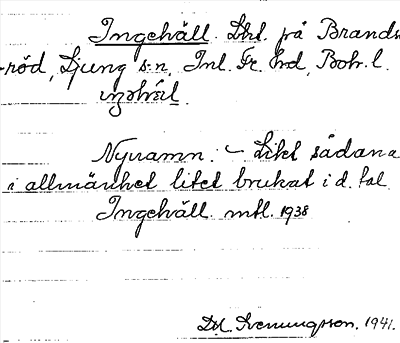 Ingehäll. Lht. på Brands-
röd, Ljung s:n, Inl. Fr. hd, Boh. l.
Nynamn. - Likt sådana
i allmänhet litet brukat i d. tal.
Ingehäll. mtl. 1938
D. Svenungsson. 1941.